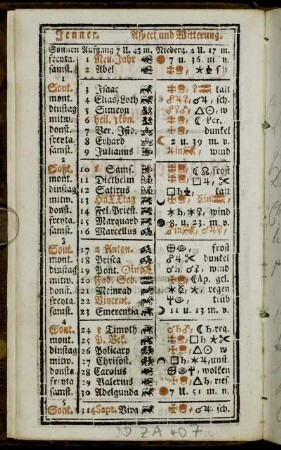 Jenner. Aspect und Witterung.
Sonnen Aufgang 7 U. 43 m. Niederg. 4 U. 17 m.
freyta. 1 Neu-Jahr 7 u. 36 m. v.
samst. 2 Abel
1
Sont. 3 Isaac kalt
mont. 4 Elias, Loth sch.
dinstag 5 Simeon w
mitw. 6 heil. 3 Kön. Per.
donst. 7 Ver. Isid. dunkel
freyta 8 Erhard 2 u. 39 m. v.
samst. 9 Julianus wind
2
Sont. 10 Sams. frost
mont. 11 Diethelm
dinstag 12 Satirus kalt
mitw. 13 Hil. XX tag
donst. 14 Fel. Priest. wind
freyta. 15 Marquard 8 u. 23 m. v.
samst. 16 Marcellus wind
3
Sont. 17 Anton. frost
mont. 18 Prisca dunkel
dinstag 19 Pont. wind
mitw. 20 Fab. Seb. Ap. gel.
donst. 21 Meinrad regen
freyta. 22 Vincent. trüb
samst. 23 Emerentia 11 u. 13 m. v.
4
Sont. 24 Timoth. h. reg.
mont. 25 P. Bek. sch.
dinstag 26 Policarp w
mitw. 27 Chrisost. unst.
donst. 28 Carolus wolken
freyta 29 Valerius
samst. 30 Adelgunda 7 U. 51 m. v.
5
Sont. 31 Sept. Virg. sch.
DD ZA 407.